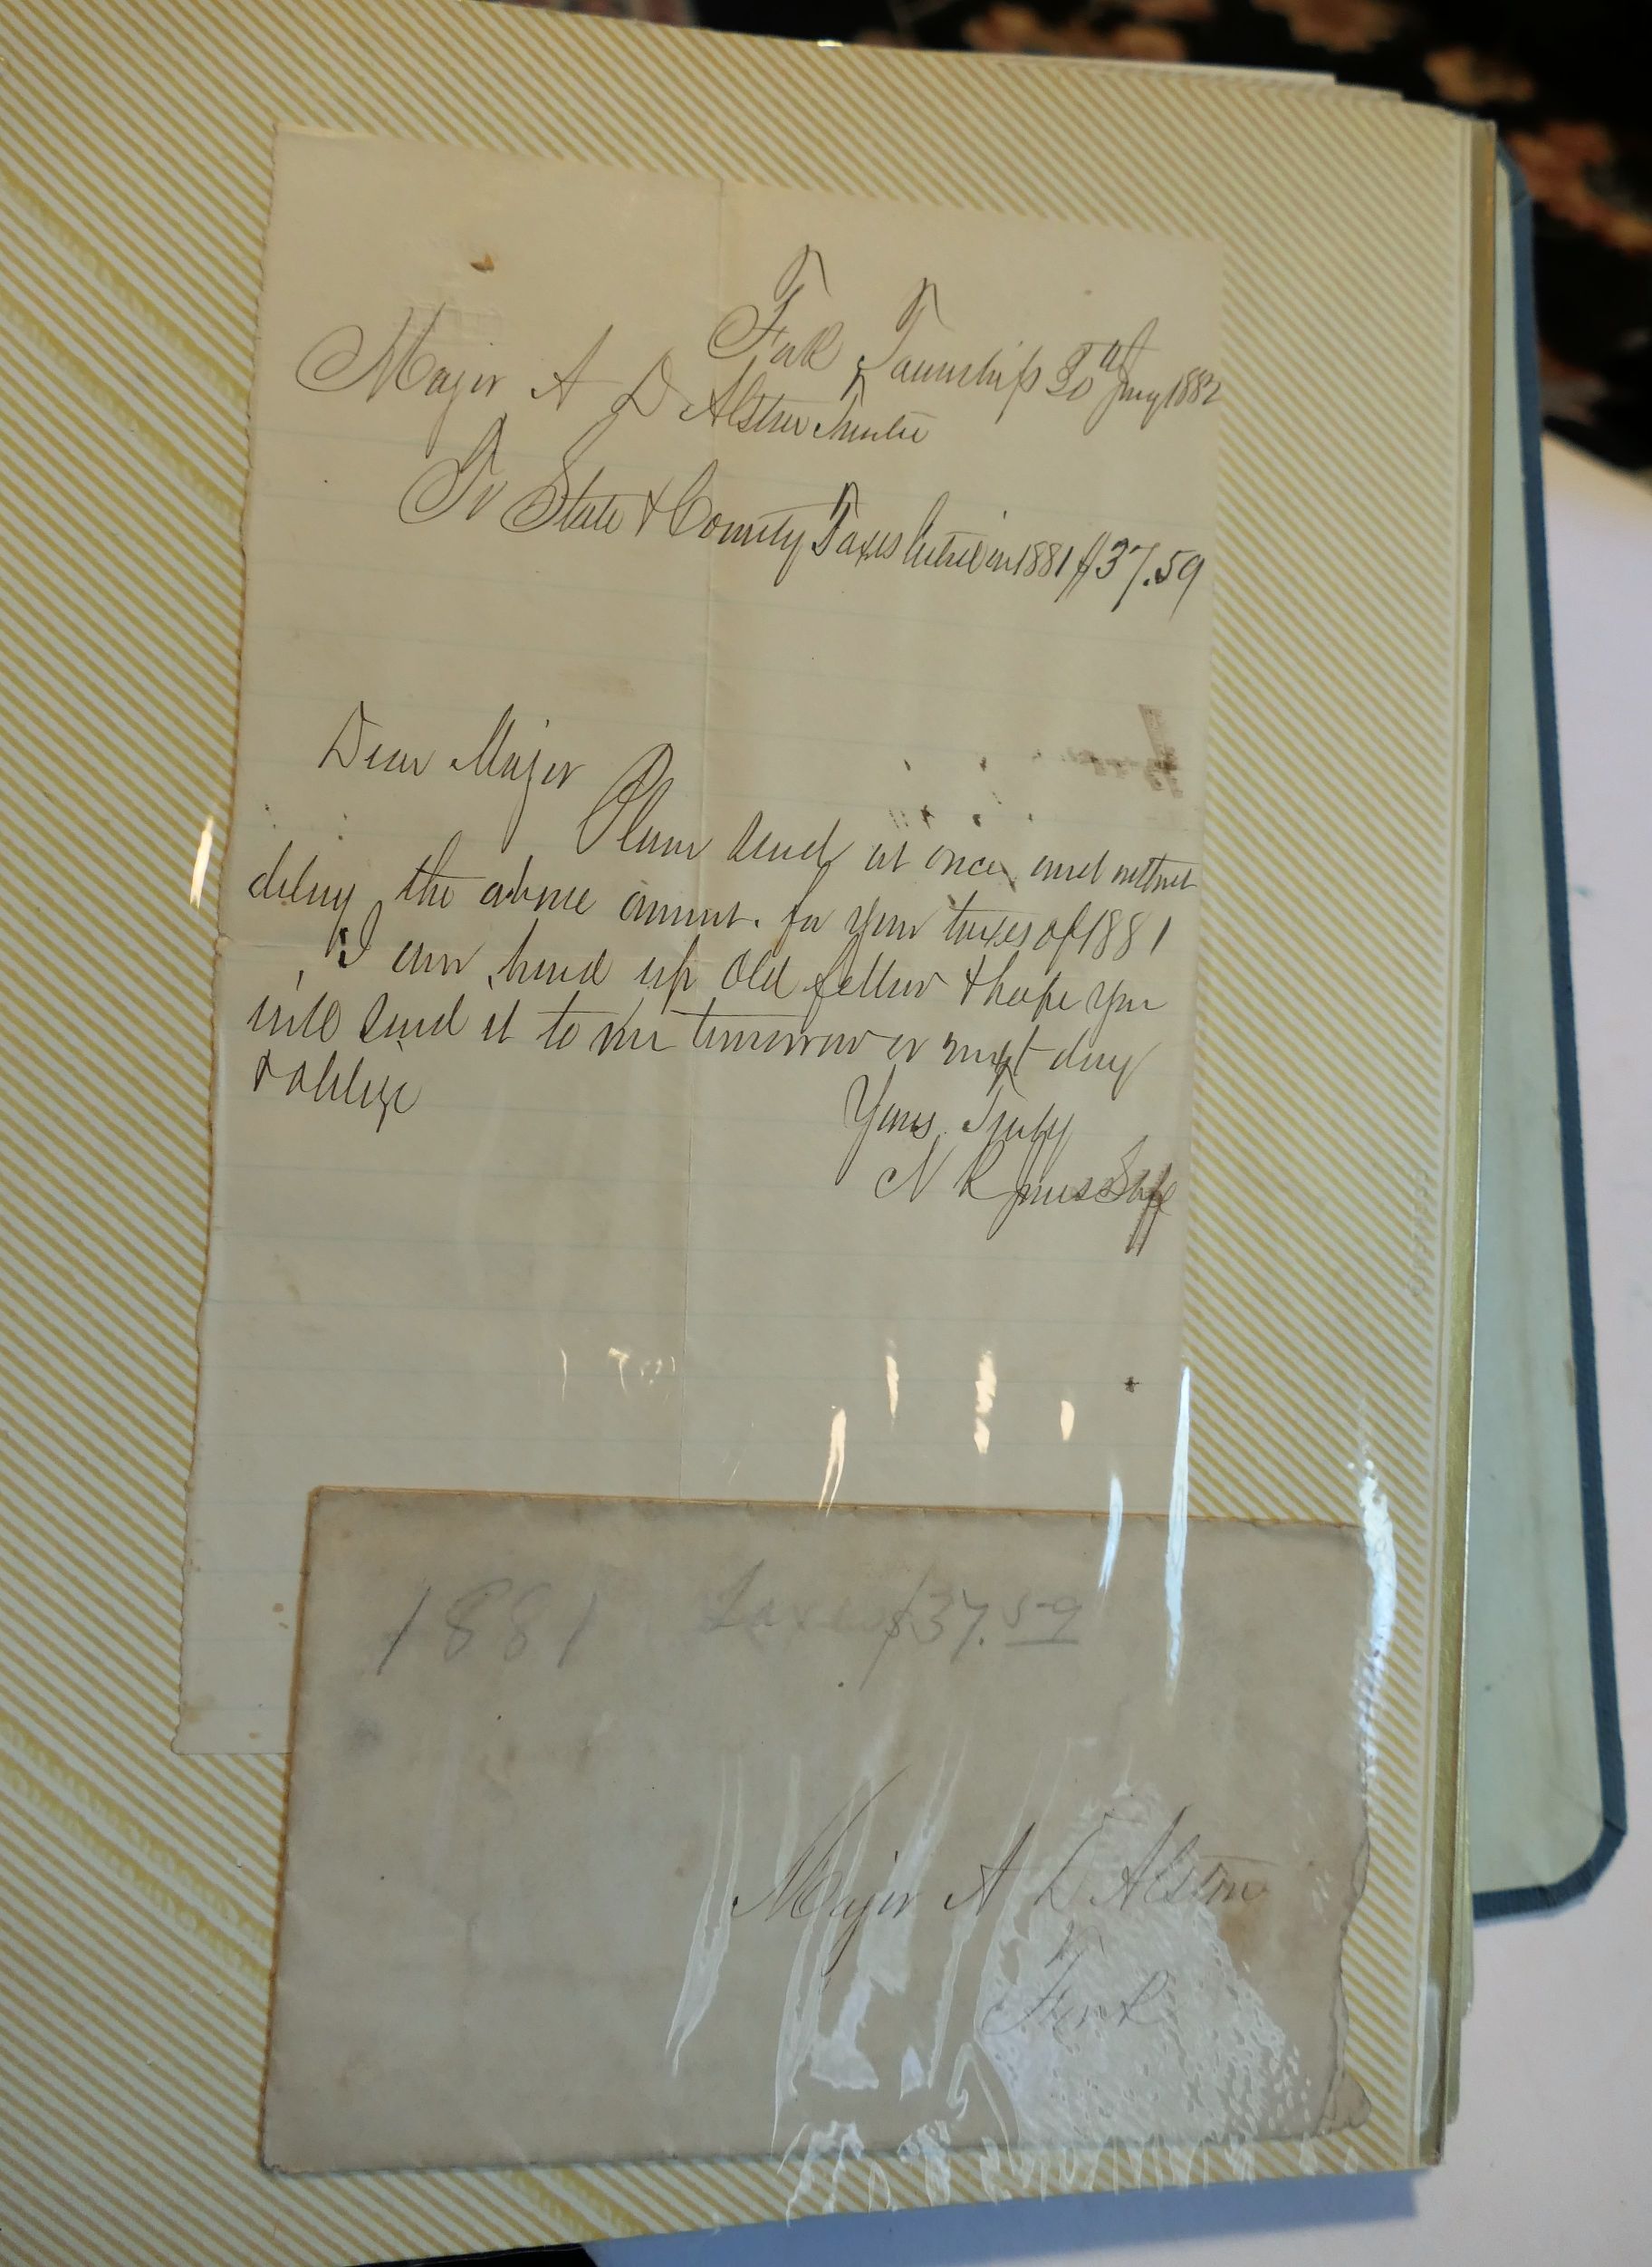 Fork Township 30th Jany 1882
Major A D Alston Trustee
To State & County Taxes listed in 1881 $37.59
Dear Major
Please send at once and without
delay the above amount. for your taxes of 1881
I am hard up old fellow & hope you
will send it to me tomorrow or next day
& oblige
Yours Truly
N R Jones Shff
1881 Taxes $37.59
Major A D Alston
Fork